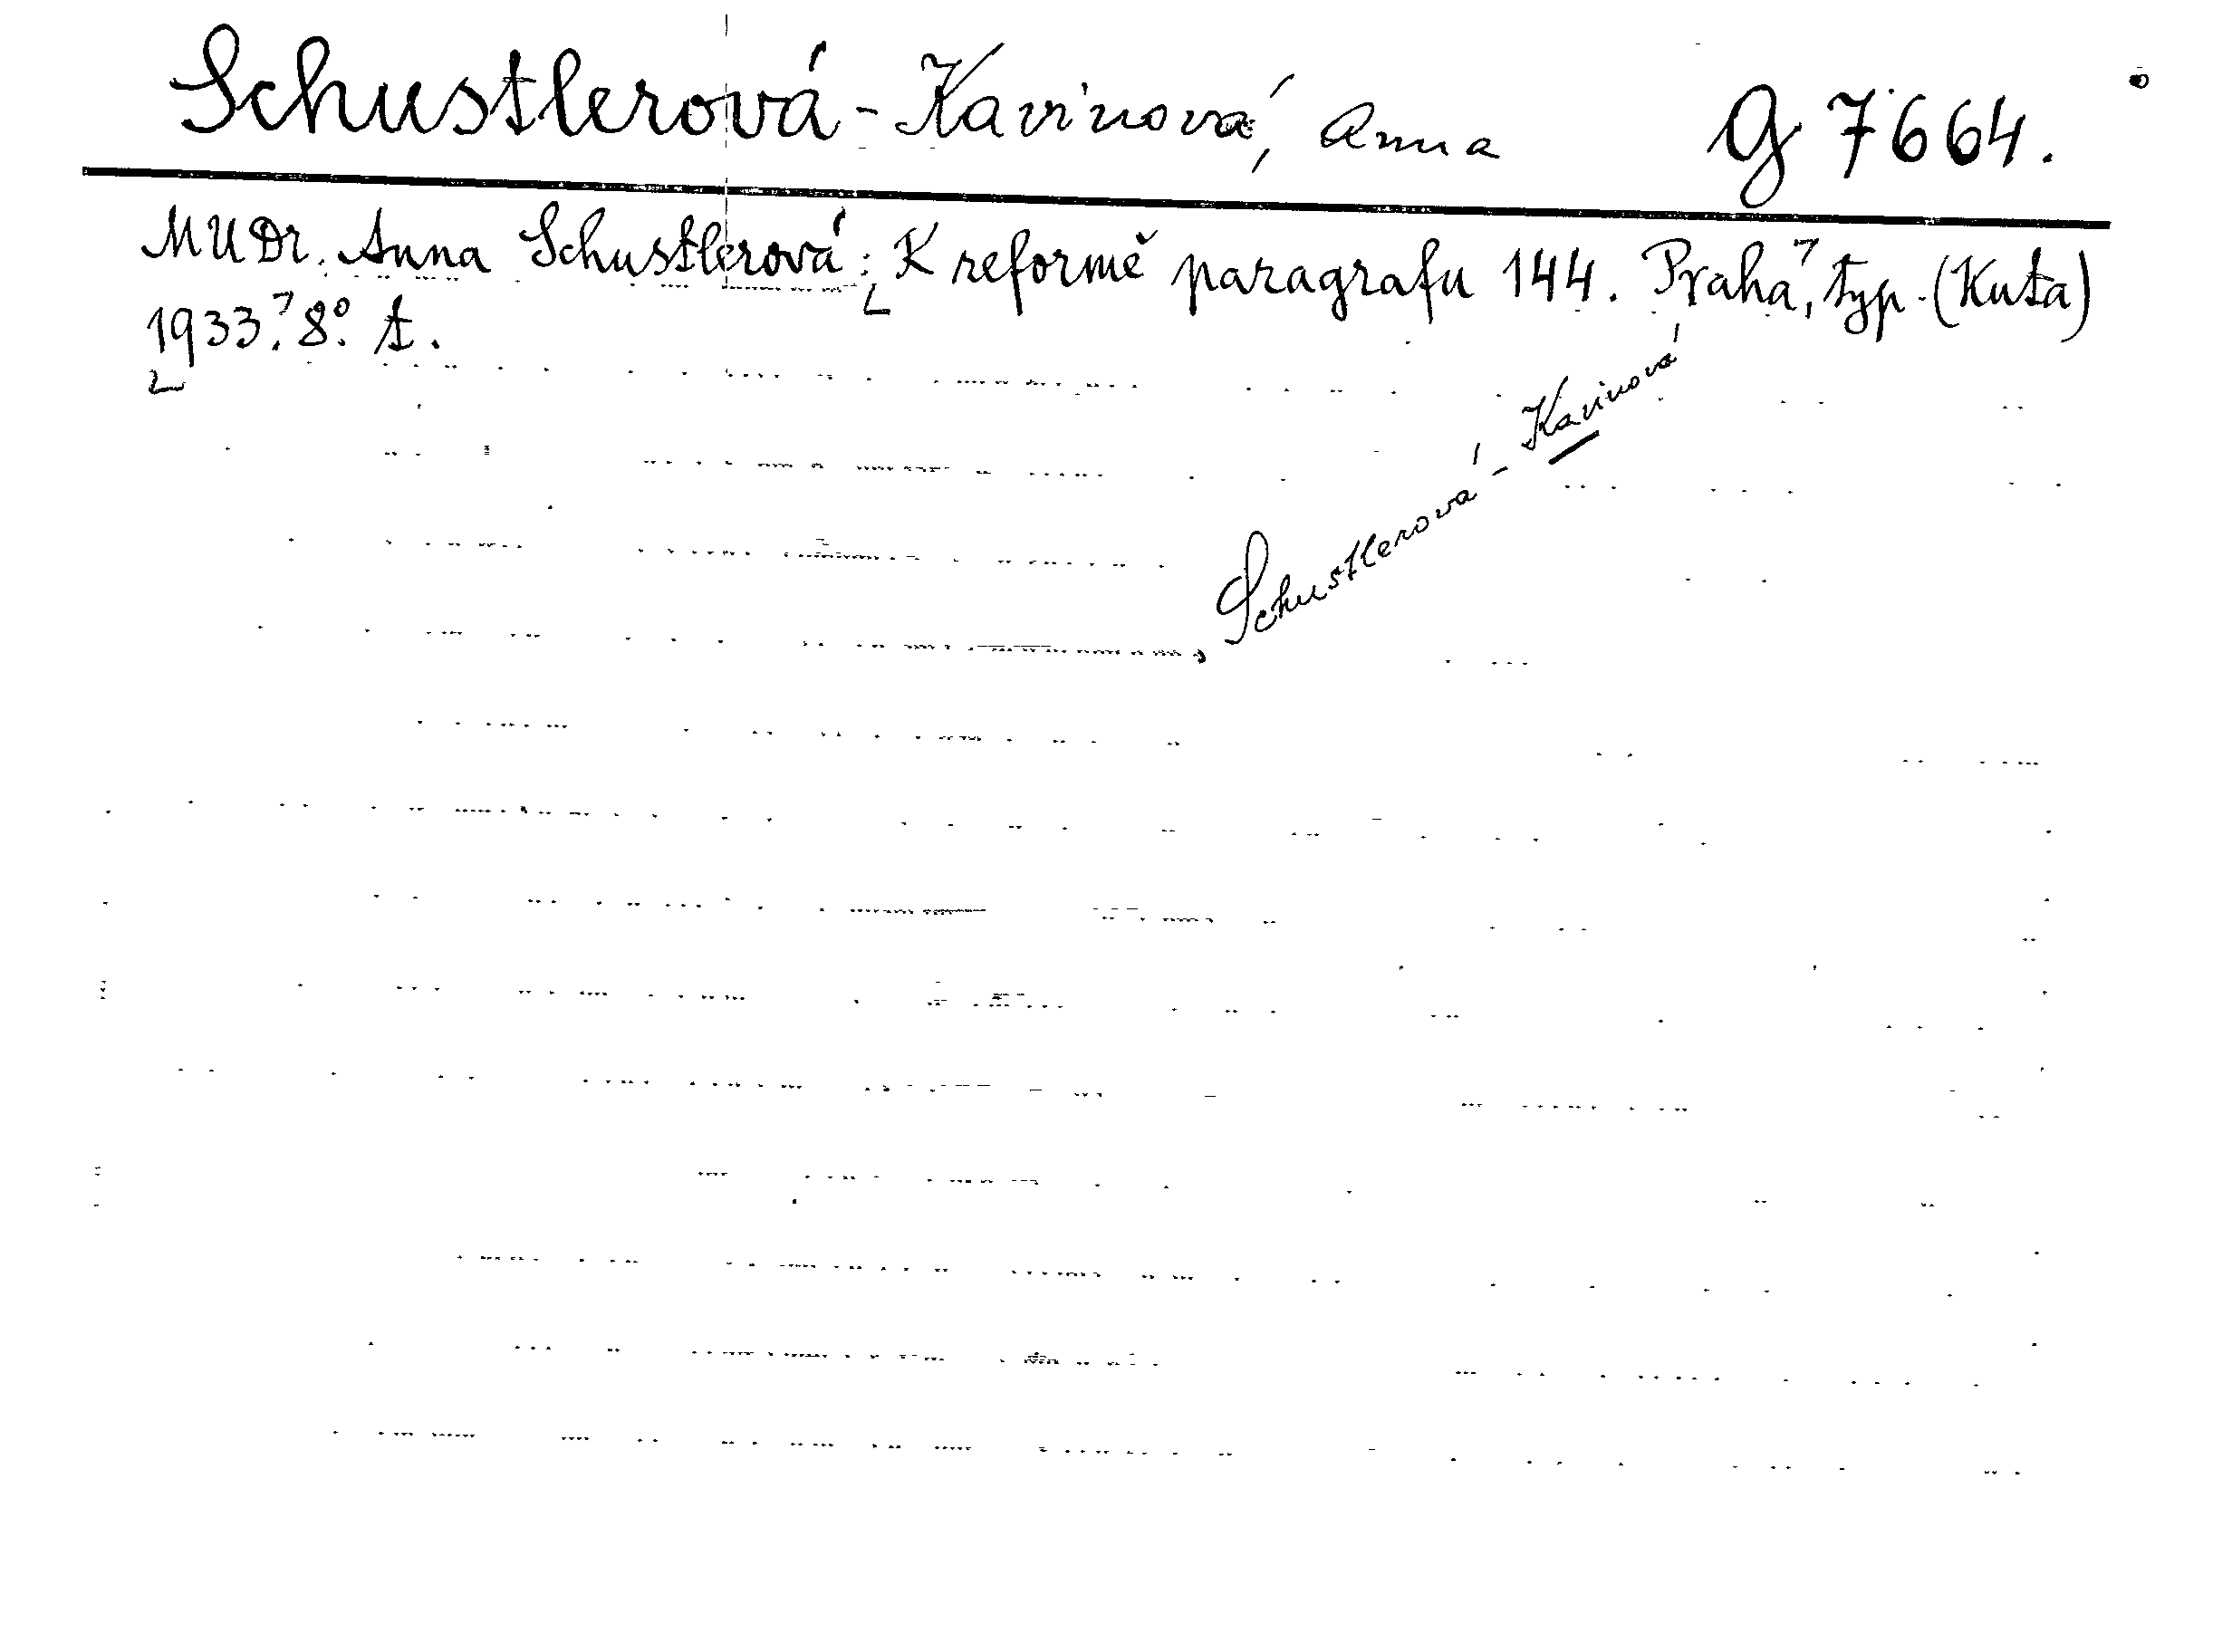 Schustlerová-Kavinová, Anna G 7664.
MUDr. Anna Schustlerová: K reformě paragrafu 144. Praha, typ. (Kuta)
1933. 8° t.
Schustlerová-Kavinová